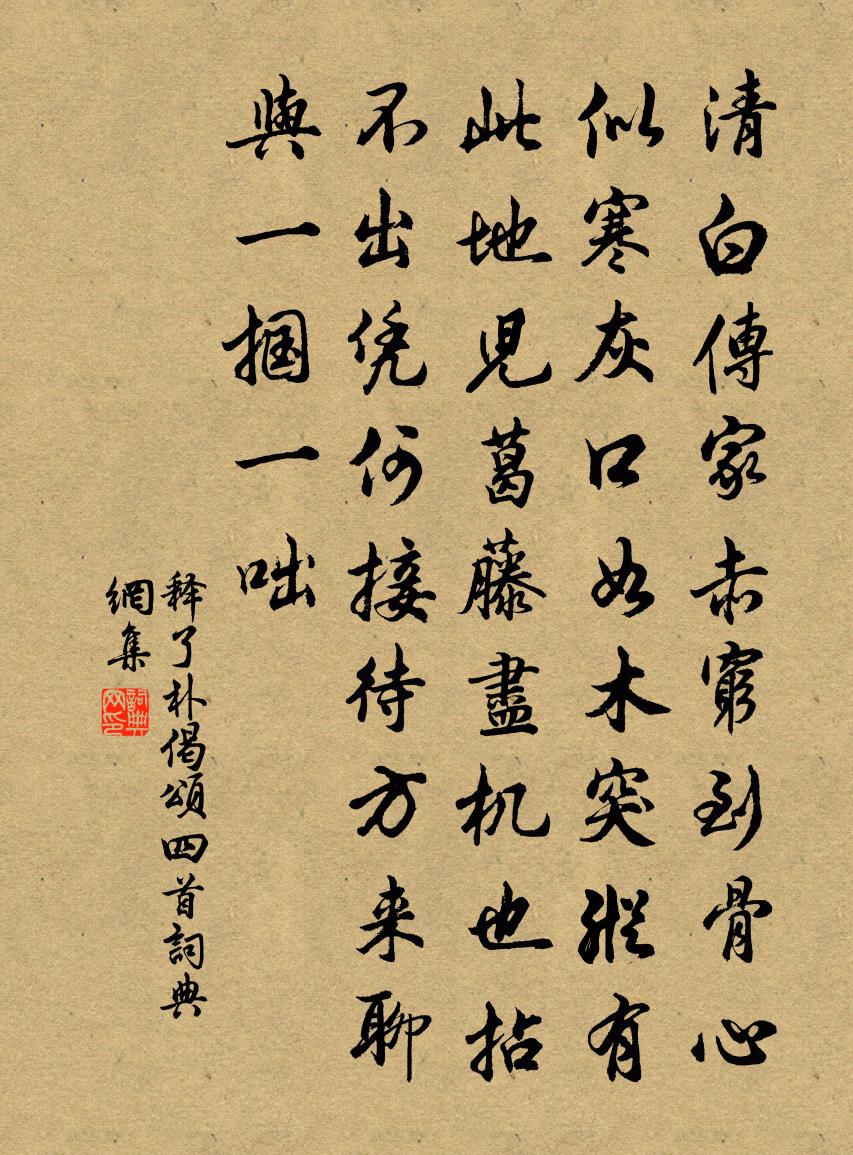 清白傳家赤窮到骨心
似寒灰口如木突縱有
此地兒葛藤盡机也拈
不出凭何接待方来聊
與一掴一咄
释了朴偈頌四首詞典
網集
詞典
网印